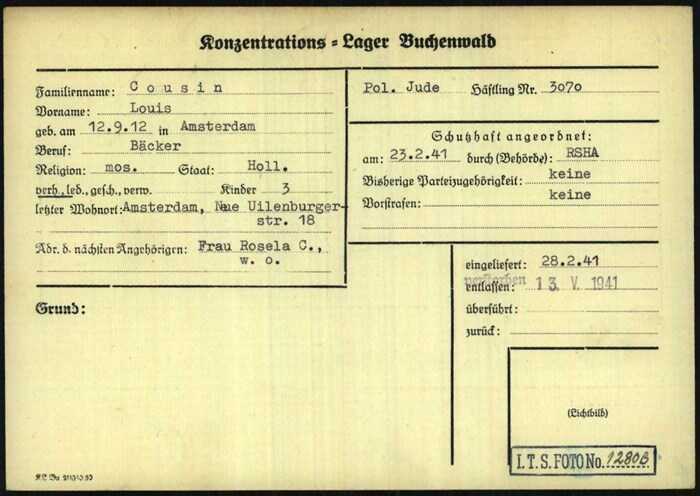 Konzentrations = Lager Buchenwald
Familienname: Cousin
Vorname: Louis
geb. am 12.9.12 in Amsterdam
Beruf: Bäcker
Religion: mos. Staat: Holl.
verh., led., gesch., verw. Kinder 3
letzter Wohnort: Amsterdam, Neue Uilenburger-
str. 18
Adr. d. nächsten Angehörigen: Frau Rosela C.,
w. o.
Grund:
Pol. Jude Häftling Nr. 3070
Schutzhaft angeordnet:
am: 23.2.41 durch (Behörde): RSHA
Bisherige Parteizugehörigkeit: keine
Vorstrafen: keine
eingeliefert: 28.2.41
verstorben
entlassen: 13. V. 1941
überführt:
zurück:
(Lichtbild)
I.T.S. FOTO No. 12808